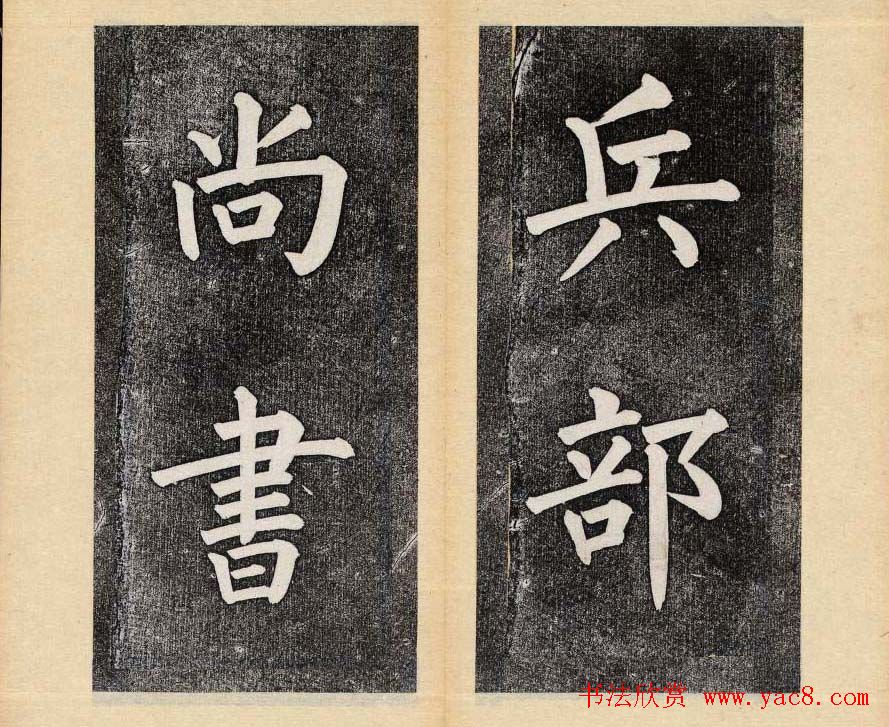 兵部
尚書
书法欣赏 www.yac8.com